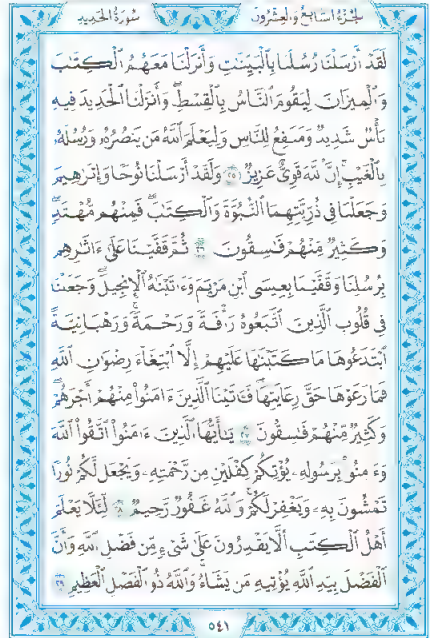 الجزء السابع والعشرون
سورة الحديد
لَقَدْ أَرْسَلْنَا رُسُلَنَا بِالْبَيِّنَٰتِ وَأَنزَلْنَا مَعَهُمُ الْكِتَٰبَ
وَالْمِيزَانَ لِيَقُومَ النَّاسُ بِالْقِسْطِ ۖ وَأَنزَلْنَا الْحَدِيدَ فِيهِ
بَأْسٌ شَدِيدٌ وَمَنَٰفِعُ لِلنَّاسِ وَلِيَعْلَمَ اللَّهُ مَن يَنصُرُهُۥ وَرُسُلَهُۥ
بِالْغَيْبِ ۚ إِنَّ اللَّهَ قَوِيٌّ عَزِيزٌ ﴿٢٥﴾ وَلَقَدْ أَرْسَلْنَا نُوحًا وَإِبْرَٰهِيمَ
وَجَعَلْنَا فِي ذُرِّيَّتِهِمَا النُّبُوَّةَ وَالْكِتَٰبَ ۖ فَمِنْهُم مُّهْتَدٍ ۖ
وَكَثِيرٌ مِّنْهُمْ فَٰسِقُونَ ﴿٢٦﴾ ثُمَّ قَفَّيْنَا عَلَىٰٓ ءَاثَٰرِهِم
بِرُسُلِنَا وَقَفَّيْنَا بِعِيسَى ابْنِ مَرْيَمَ وَءَاتَيْنَٰهُ الْإِنجِيلَ ۖ وَجَعَلْنَا
فِي قُلُوبِ الَّذِينَ اتَّبَعُوهُ رَأْفَةً وَرَحْمَةً وَرَهْبَانِيَّةً
ابْتَدَعُوهَا مَا كَتَبْنَٰهَا عَلَيْهِمْ إِلَّا ابْتِغَآءَ رِضْوَٰنِ اللَّهِ
فَمَا رَعَوْهَا حَقَّ رِعَايَتِهَا ۖ فَـَٔاتَيْنَا الَّذِينَ ءَامَنُوا۟ مِنْهُمْ أَجْرَهُمْ ۖ
وَكَثِيرٌ مِّنْهُمْ فَٰسِقُونَ ﴿٢٧﴾ يَٰٓأَيُّهَا الَّذِينَ ءَامَنُوا۟ اتَّقُوا۟ اللَّهَ
وَءَامِنُوا۟ بِرَسُولِهِۦ يُؤْتِكُمْ كِفْلَيْنِ مِن رَّحْمَتِهِۦ وَيَجْعَل لَّكُمْ نُورًا
تَمْشُونَ بِهِۦ وَيَغْفِرْ لَكُمْ ۚ وَاللَّهُ غَفُورٌ رَّحِيمٌ ﴿٢٨﴾ لِّئَلَّا يَعْلَمَ
أَهْلُ الْكِتَٰبِ أَلَّا يَقْدِرُونَ عَلَىٰ شَيْءٍ مِّن فَضْلِ اللَّهِ ۙ وَأَنَّ
الْفَضْلَ بِيَدِ اللَّهِ يُؤْتِيهِ مَن يَشَآءُ ۚ وَاللَّهُ ذُو الْفَضْلِ الْعَظِيمِ ﴿٢٩﴾
٥٤١